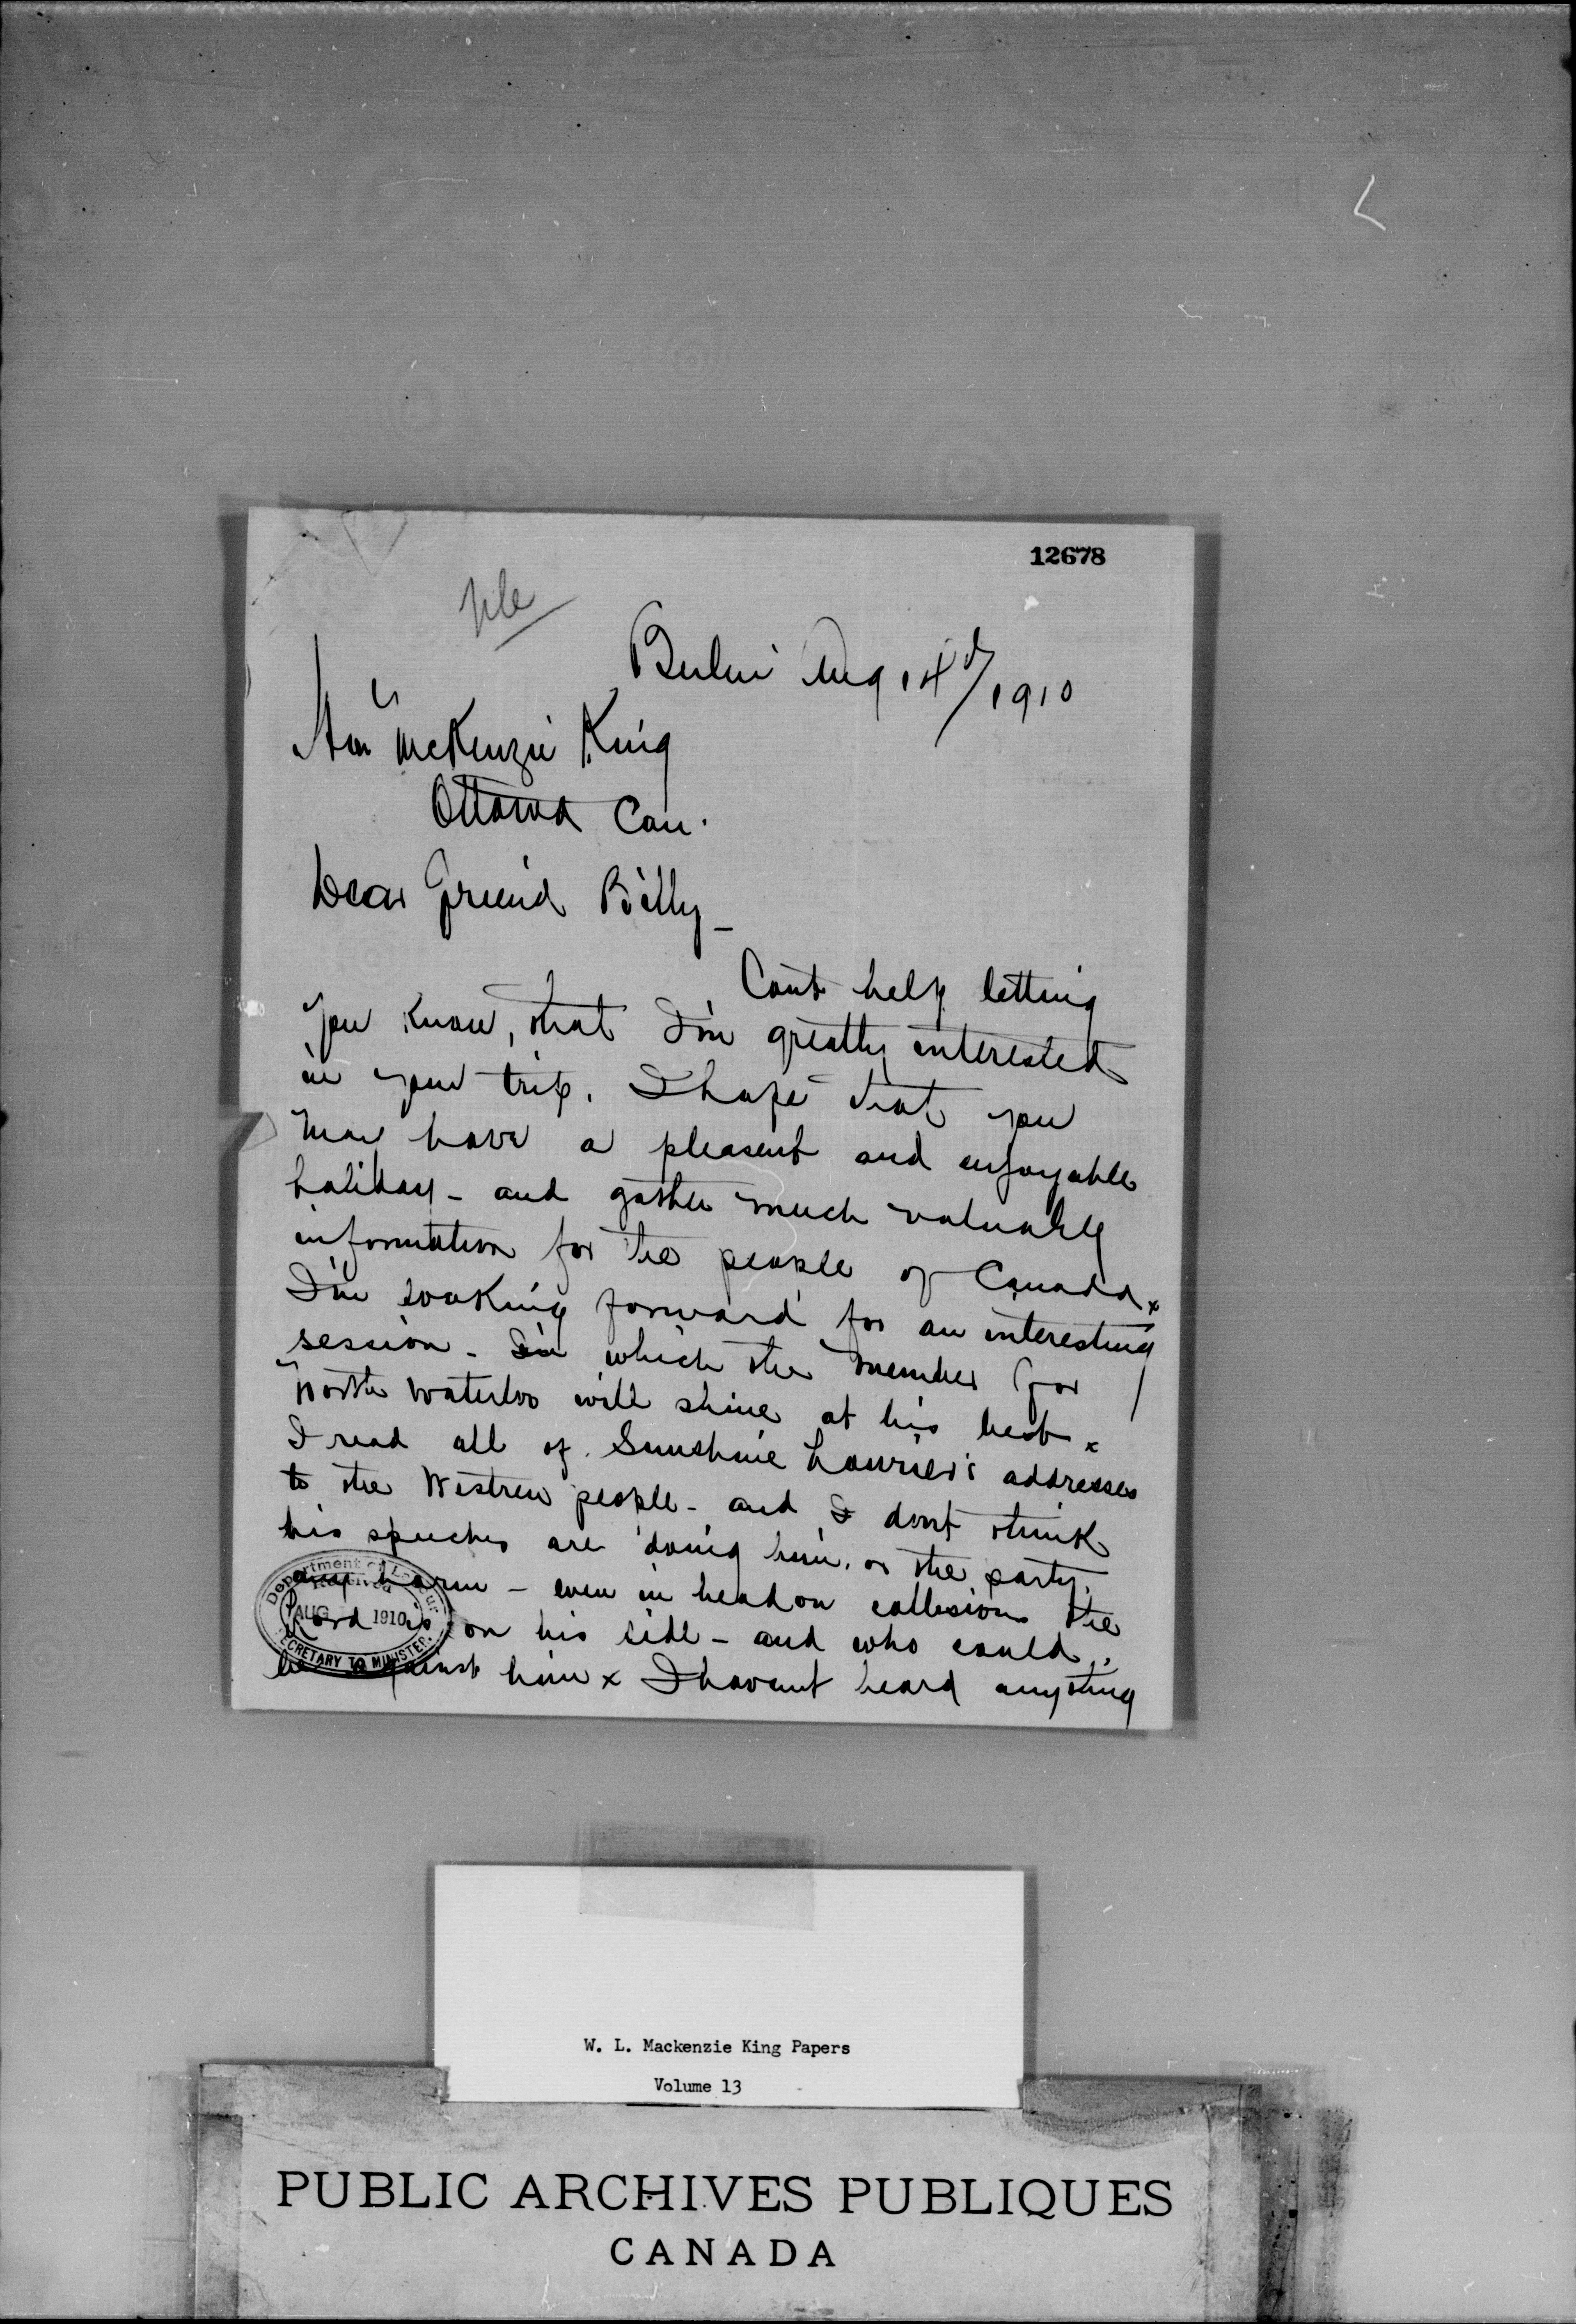 12678
file
Berlin Aug 14th/1910
Hon McKenzie King
Ottawa Can.
Dear Freind Billy_
Cant help letting
you know, that I'm greatly interested
in your trip. I hope that you
may have a pleasent and enjoyable
holiday - and gather much valuably
information for the people of Canada x
I'm looking forward for an interesting
session - In which the member for
North Waterloo will shine at his best x
I read all of Sunshine Laurier's addresses
to the Western people - and I dont think
his speeches are doing him, or the party,
any harm - even in head on collisions the
Lord is on his side - and who could
be against him x I havent heard anything
Department of Labour
Received
AUG 1910
SECRETARY TO MINISTER.
W. L. Mackenzie King Papers
Volume 13
PUBLIC ARCHIVES PUBLIQUES
CANADA